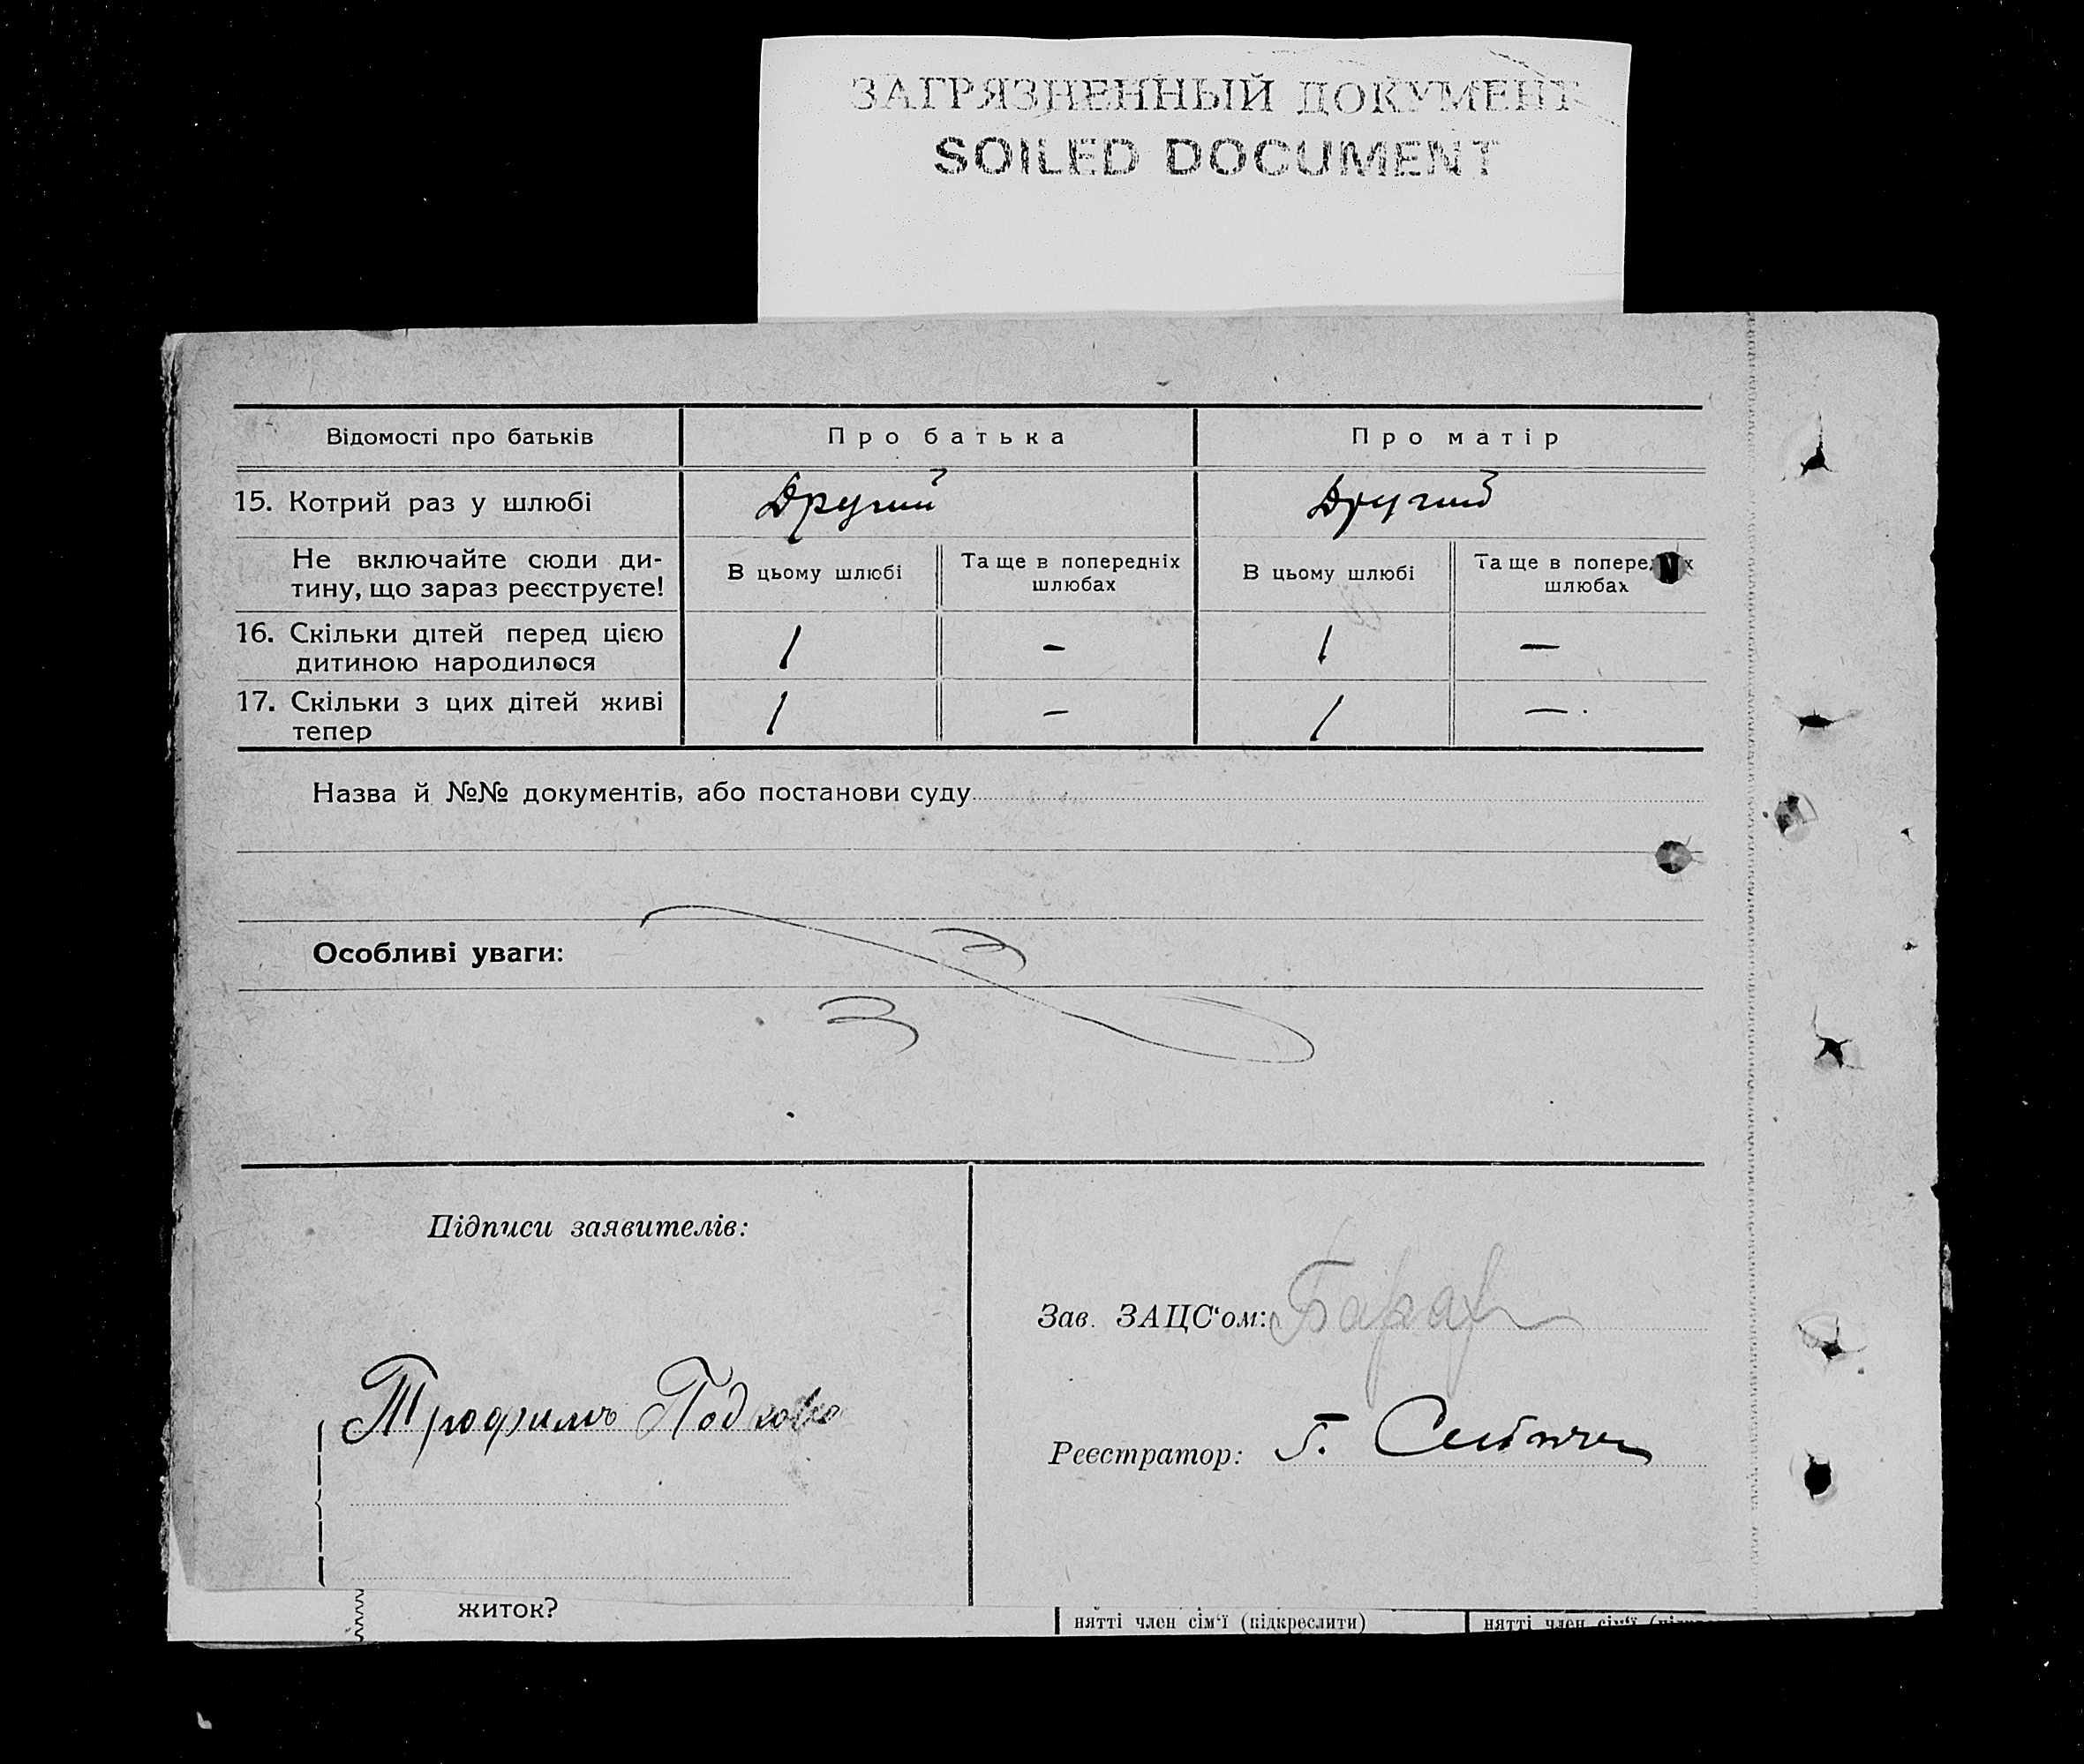 ЗАГРЯЗНЕННЫЙ ДОКУМЕНТ
SOILED DOCUMENT
Відомості про батьків Про батька Про матір
15. Котрий раз у шлюбі Другий Другий
Не включайте сюди ди-
тину, що зараз реєструєте!
В цьому шлюбі Та ще в попередніх
шлюбах
В цьому шлюбі Та ще в
шлюбах
16. Скільки дітей перед цією
дитиною народилося
1 – 1 –
17. Скільки з цих дітей живі
тепер
1 – 1 –
Назва й №№ документів, або постанови суду
Особливі уваги:
Підписи заявителів:
Зав. ЗАЦС‘ом:
Трофимъ
Реєстратор: Г.
житок?
нятті член сім‘ї (підкреслити) нятті член сім‘ї